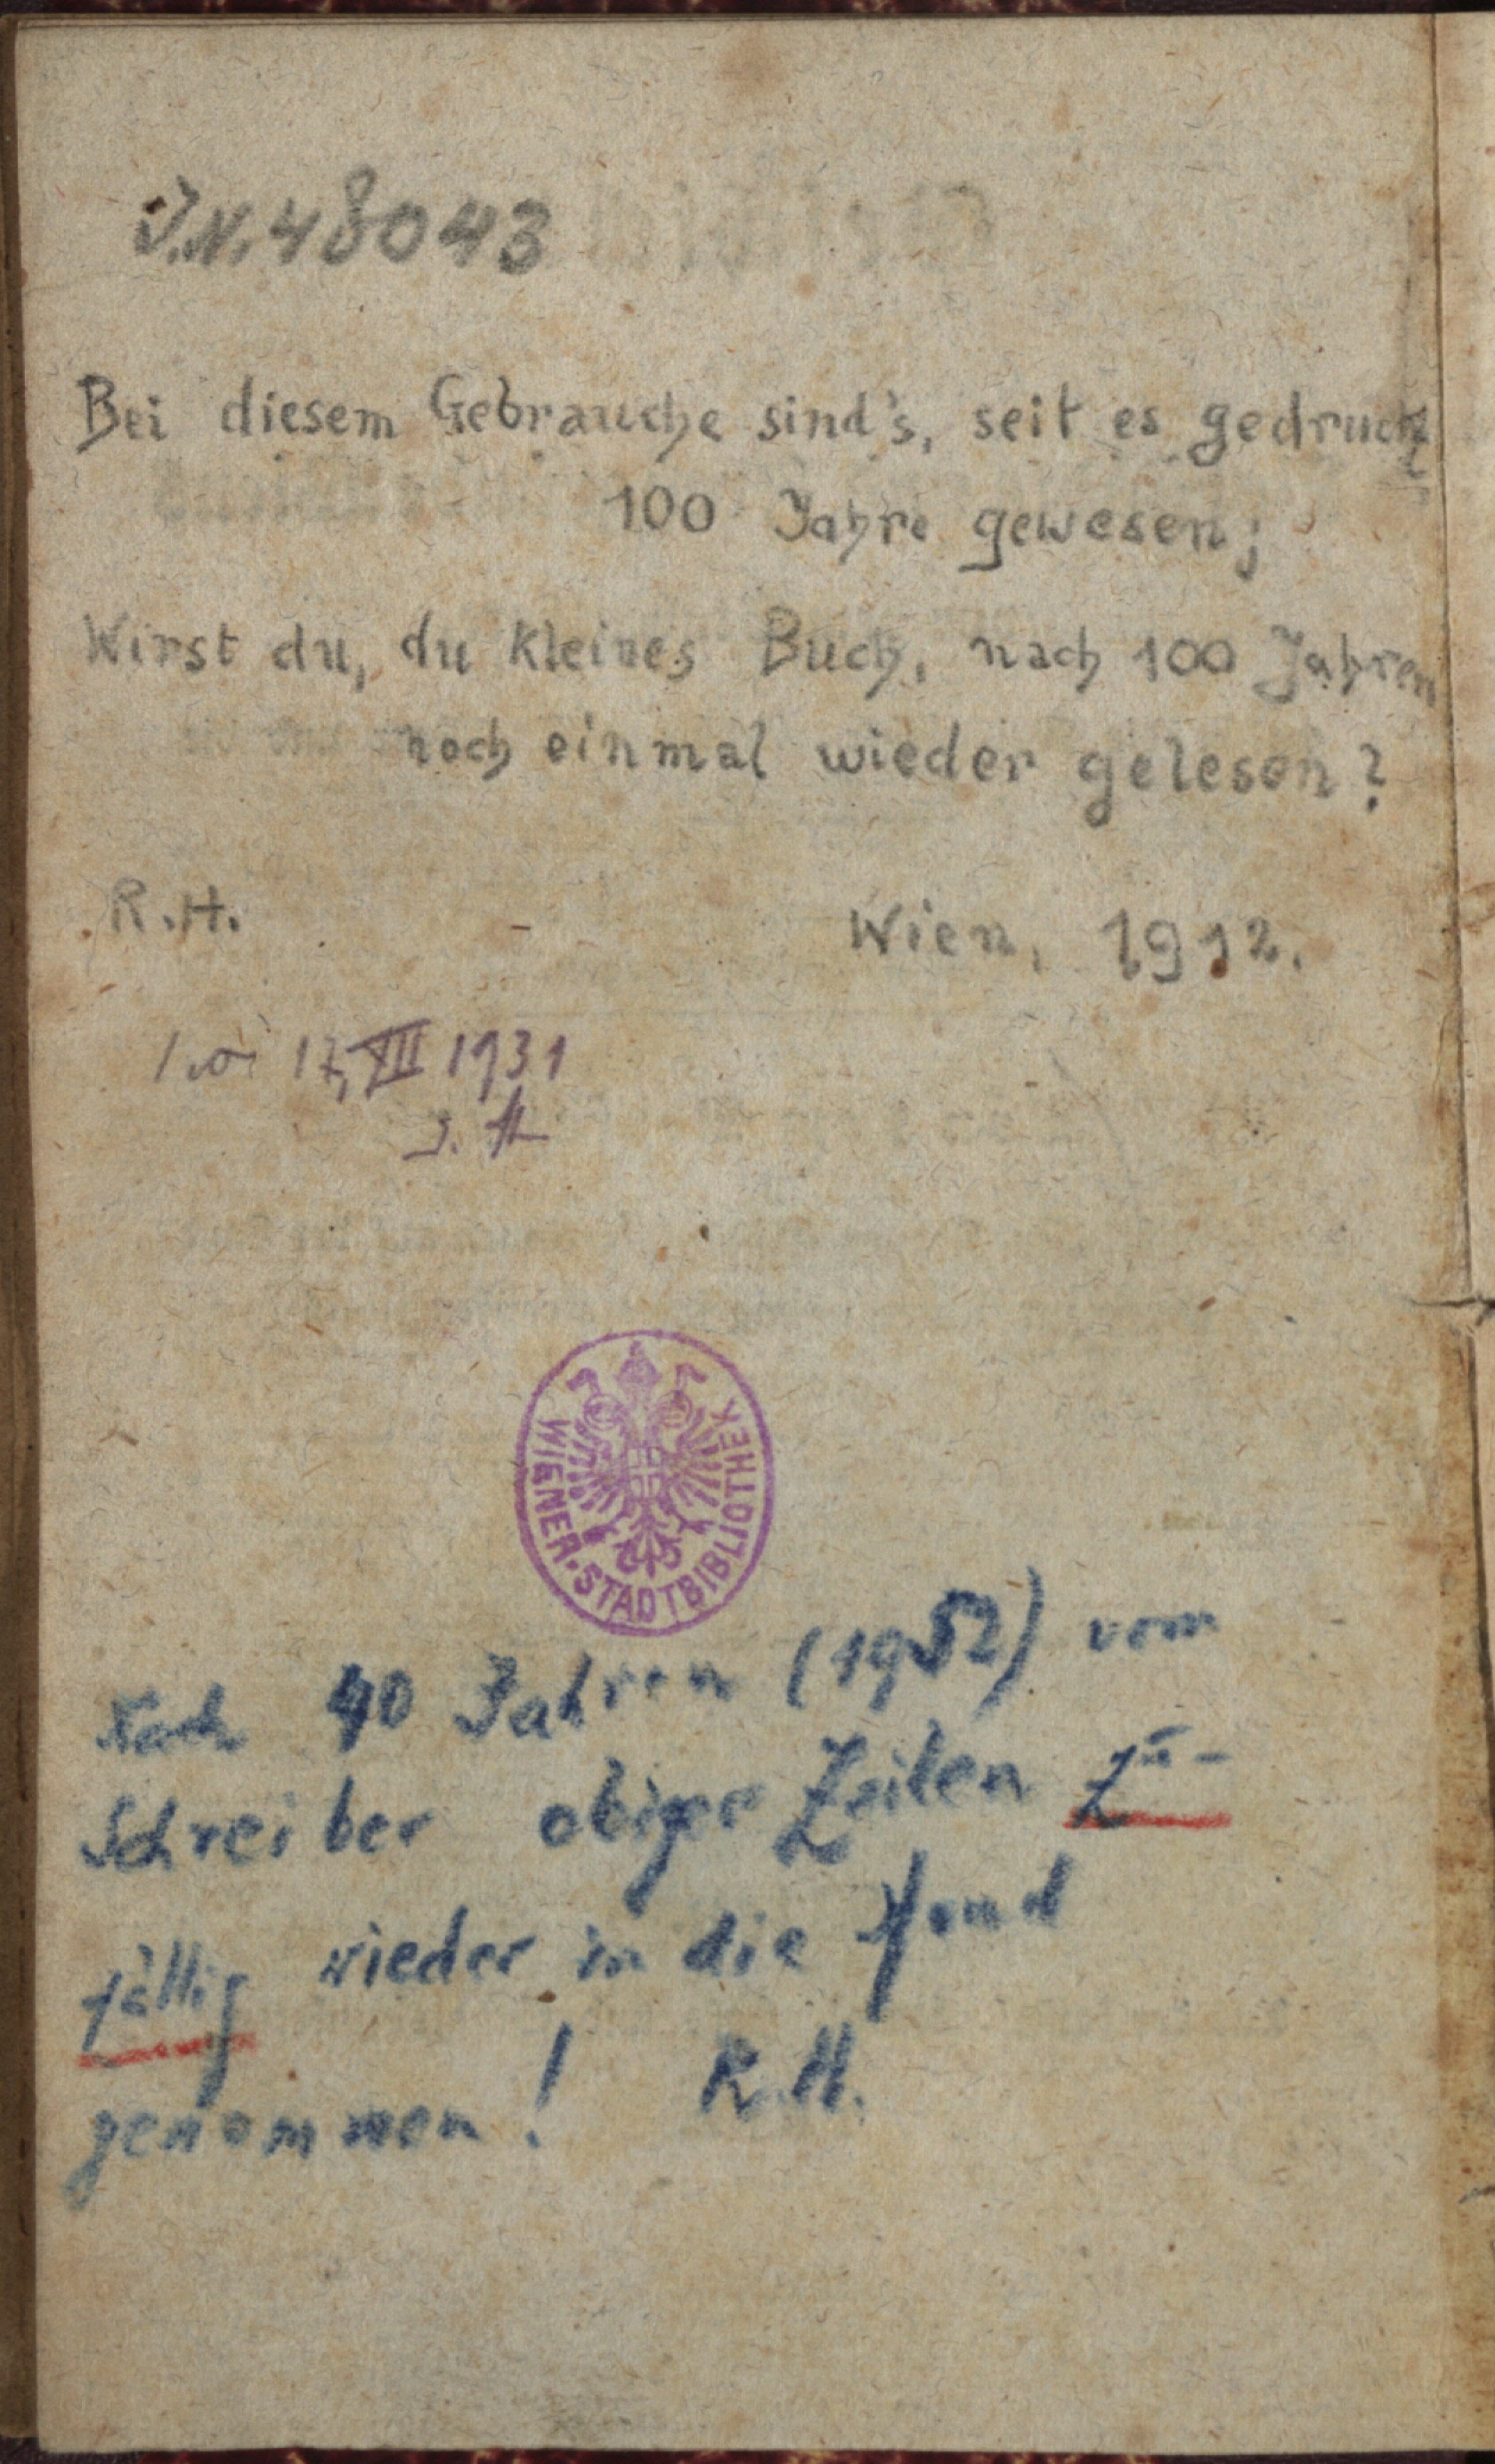 J.N. 48043
Bei diesem Gebrauche sind's, seit es gedruckt
100 Jahre gewesen;
Wirst du, du kleines Buch, nach 100 Jahren
noch einmal wieder gelesen?
R.H.
Wien, 1912.
17, XII 1931
WIENER-STADTBIBLIOTHEK
Nach 40 Jahren (1952) vom
Schreiber obiger Zeilen zu-
fällig wieder in die Hand
genommen! R.H.